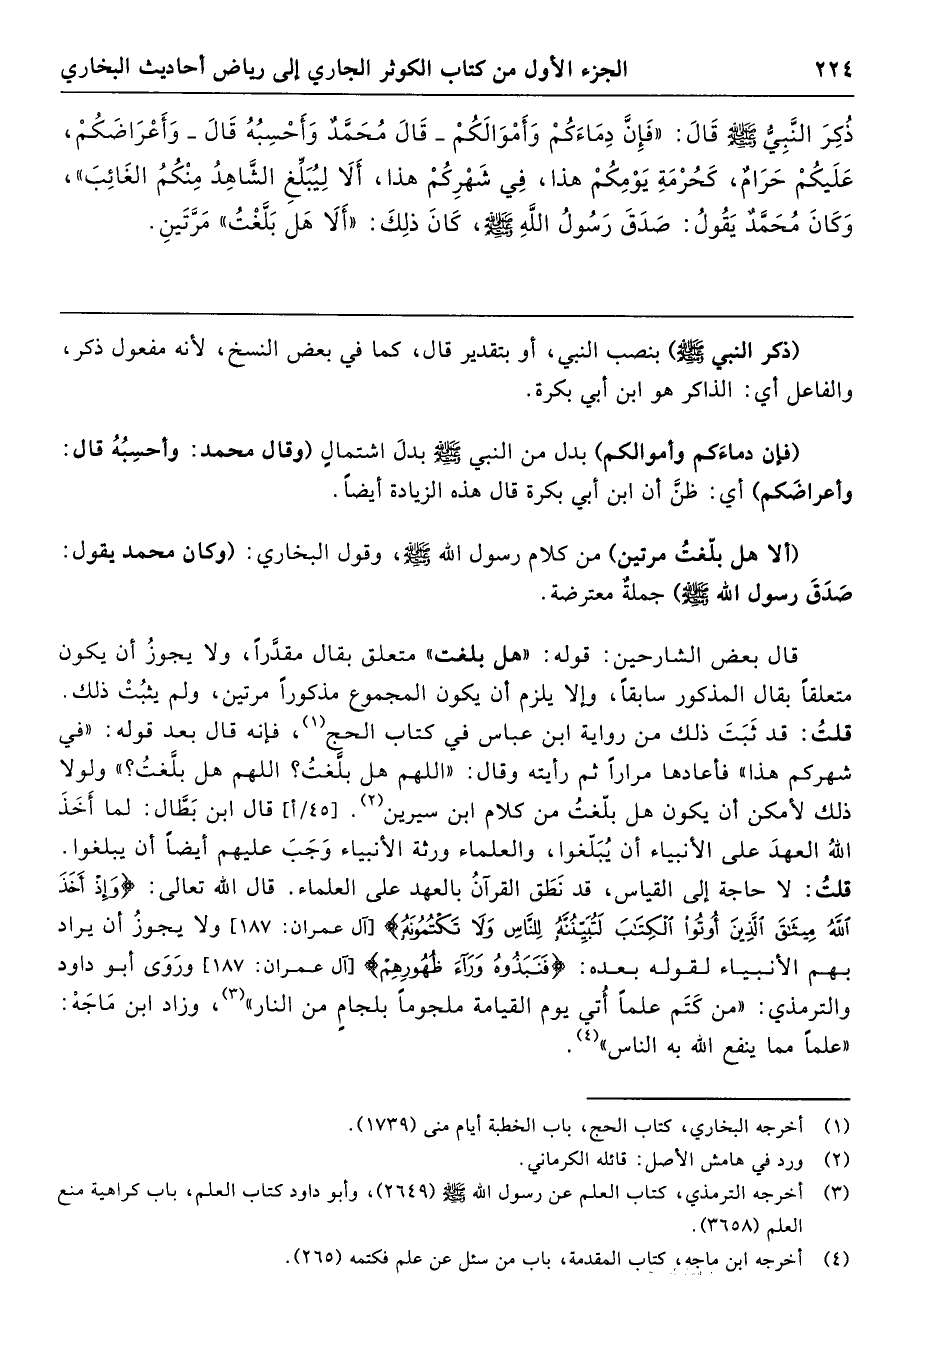 ٢٢٤ الجزء الأول من كتاب الكوثر الجاري إلى رياض أحاديث البخاري
ذُكِرَ النَّبِيُّ ﷺ قَالَ: «فَإِنَّ دِمَاءَكُمْ وَأَمْوَالَكُمْ ـ قَالَ مُحَمَّدٌ وَأَحْسِبُهُ قَالَ ـ وَأَعْرَاضَكُمْ،
عَلَيكُمْ حَرَامٌ، كَحُرْمَةِ يَوْمِكُمْ هذا، فِي شَهْرِكُمْ هذا، أَلَا لِيُبَلِّغِ الشَّاهِدُ مِنْكُمُ الغَائِبَ»،
وَكَانَ مُحَمَّدٌ يَقُولُ: صَدَقَ رَسُولُ اللَّهِ ﷺ، كَانَ ذلِكَ: «أَلَا هَل بَلَّغتُ» مَرَّتَينِ.
(ذكر النبي ﷺ) بنصب النبي، أو بتقدير قال، كما في بعض النسخ، لأنه مفعول ذكر،
والفاعل أي: الذاكر هو ابن أبي بكرة.
(فإن دماءَكم وأموالكم) بدل من النبي ﷺ بدلَ اشتمالٍ (وقال محمد: وأحسِبُهُ قال:
وأعراضَكم) أي: ظنَّ أن ابن أبي بكرة قال هذه الزيادة أيضاً.
(ألا هل بلّغتُ مرتين) من كلام رسول الله ﷺ، وقول البخاري: (وكان محمد يقول:
صَدَقَ رسول الله ﷺ) جملةٌ معترضة.
قال بعض الشارحين: قوله: «هل بلغت» متعلق بقال مقدَّراً، ولا يجوزُ أن يكون
متعلقاً بقال المذكور سابقاً، وإلا يلزم أن يكون المجموع مذكوراً مرتين، ولم يثبُتْ ذلك.
قلتُ: قد ثَبَتَ ذلك من رواية ابن عباس في كتاب الحج(١)، فإنه قال بعد قوله: «في
شهركم هذا» فأعادها مراراً ثم رأيته وقال: «اللهم هل بلَّغتُ؟ اللهم هل بلَّغتُ؟» ولولا
ذلك لأمكن أن يكون هل بلّغتُ من كلام ابن سيرين(٢). [٤٥/أ] قال ابن بَطَّال: لما أَخَذَ
اللهُ العهدَ على الأنبياء أن يُبَلّغوا، والعلماء ورثة الأنبياء وَجَبَ عليهم أيضاً أن يبلغوا.
قلتُ: لا حاجة إلى القياس، قد نَطَق القرآنُ بالعهد على العلماء. قال الله تعالى: ﴿وَإِذْ أَخَذَ
ٱللَّهُ مِيثَٰقَ ٱلَّذِينَ أُوتُوا۟ ٱلْكِتَٰبَ لَتُبَيِّنُنَّهُۥ لِلنَّاسِ وَلَا تَكْتُمُونَهُۥ﴾ [آل عمران: ١٨٧] ولا يجوزُ أن يراد
بهم الأنبياء لقوله بعده: ﴿فَنَبَذُوهُ وَرَآءَ ظُهُورِهِمْ﴾ [آل عمران: ١٨٧] ورَوَى أبو داود
والترمذي: «من كَتَم علماً أُتي يوم القيامة ملجوماً بلجامٍ من النار»(٣)، وزاد ابن مَاجَهْ:
«علماً مما ينفع الله به الناس»(٤).
(١) أخرجه البخاري، كتاب الحج، باب الخطبة أيام منى (١٧٣٩).
(٢) ورد في هامش الأصل: قائله الكرماني.
(٣) أخرجه الترمذي، كتاب العلم عن رسول الله ﷺ (٢٦٤٩)، وأبو داود كتاب العلم، باب كراهية منع
العلم (٣٦٥٨).
(٤) أخرجه ابن ماجه، كتاب المقدمة، باب من سئل عن علم فكتمه (٢٦٥).